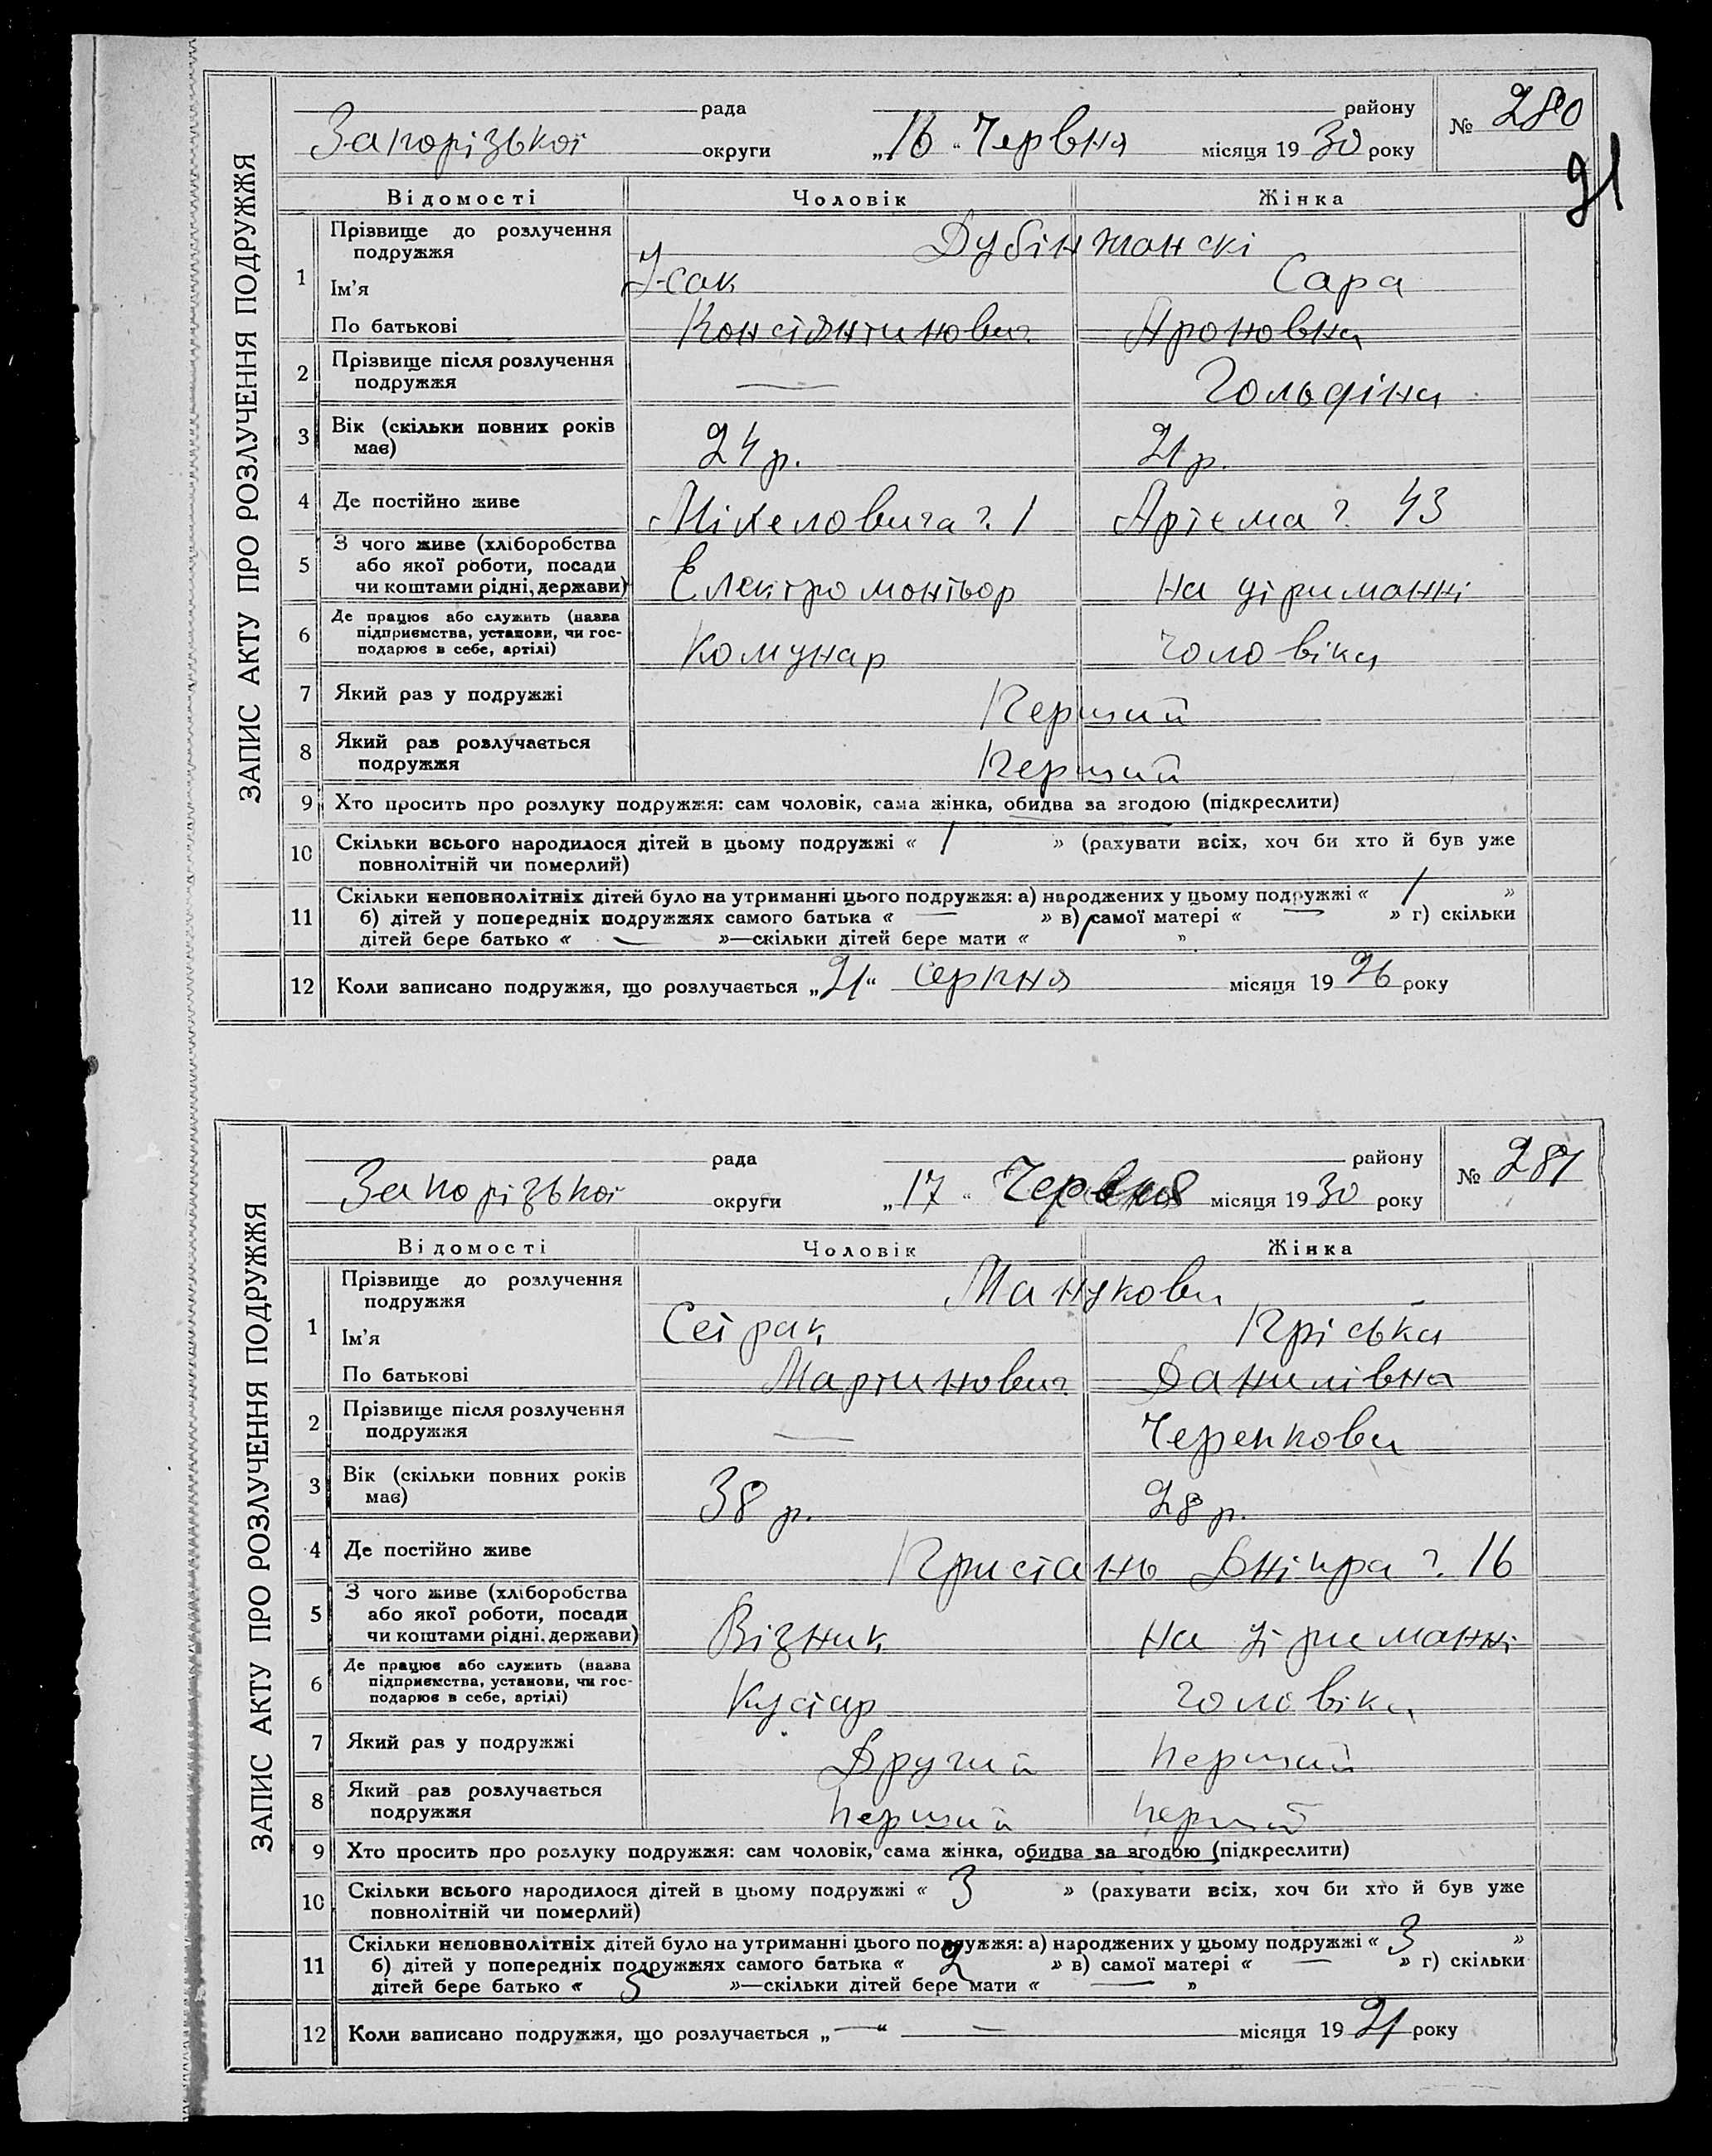 ЗАПИС АКТУ ПРО РОЗЛУЧЕННЯ ПОДРУЖЖЯ
рада району № 280
Запорізької округи „16“ Червня місяця 1930 року
91
Відомості Чоловік Жінка
1 Прізвище до розлучення подружжя Дубінжанскі
Ім’я Ісак Сара
По батькові Константинович Ароновна
2 Прізвище після розлучення подружжя — Гольдіна
3 Вік (скільки повних років має) 24 р. 21 р.
4 Де постійно живе Міхеловича 1 Артема 43
5 З чого живе (хліборобства або якої роботи, посади чи коштами рідні, держави) Електромонтьор на утриманні
6 Де працює або служить (назва підприємства, установи, чи господарює в себе, артілі) Комунар чоловіка
7 Який раз у подружжі Перший
8 Який раз розлучається подружжя Перший
9 Хто просить про розлуку подружжя: сам чоловік, сама жінка, обидва за згодою (підкреслити)
10 Скільки всього народилося дітей в цьому подружжі « 1 » (рахувати всіх, хоч би хто й був уже
повнолітній чи померлий)
11 Скільки неповнолітніх дітей було на утриманні цього подружжя: а) народжених у цьому подружжі « 1 »
б) дітей у попередніх подружжях самого батька « — » в) самої матері « — » г) скільки
дітей бере батько « — »—скільки дітей бере мати « 1 »
12 Коли записано подружжя, що розлучається „21“ серпня місяця 1926 року
ЗАПИС АКТУ ПРО РОЗЛУЧЕННЯ ПОДРУЖЖЯ
рада району № 281
Запорізької округи „17“ Червня місяця 1930 року
Відомості Чоловік Жінка
1 Прізвище до розлучення подружжя Манукови
Ім’я Сетрак Пріська
По батькові Мартинович Данилівна
2 Прізвище після розлучення подружжя — Черенкова
3 Вік (скільки повних років має) 38 р. 28 р.
4 Де постійно живе Пристань Дніпра 16
5 З чого живе (хліборобства або якої роботи, посади чи коштами рідні, держави) Візник на утриманні
6 Де працює або служить (назва підприємства, установи, чи господарює в себе, артілі) Кустар чоловіка
7 Який раз у подружжі Другий перший
8 Який раз розлучається подружжя перший перший
9 Хто просить про розлуку подружжя: сам чоловік, сама жінка, обидва за згодою (підкреслити)
10 Скільки всього народилося дітей в цьому подружжі « 3 » (рахувати всіх, хоч би хто й був уже
повнолітній чи померлий)
11 Скільки неповнолітніх дітей було на утриманні цього подружжя: а) народжених у цьому подружжі « 3 »
б) дітей у попередніх подружжях самого батька « 2 » в) самої матері « — » г) скільки
дітей бере батько « 5 »—скільки дітей бере мати « — »
12 Коли записано подружжя, що розлучається „—“ — місяця 1921 року